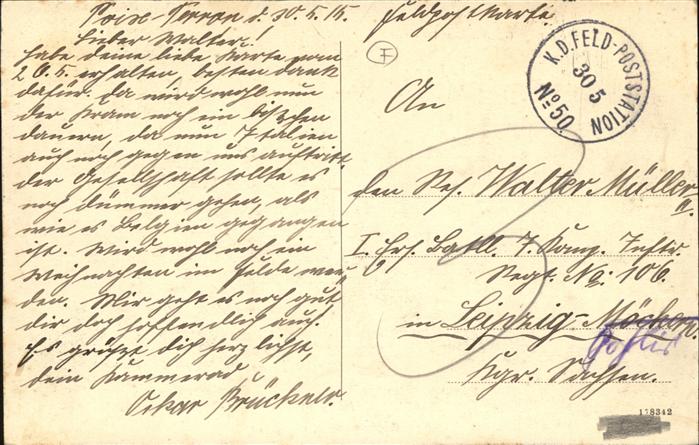 Poix-Terron d. 30.5.15.
Lieber Walter!
habe deine liebe Karte vom
26.5. erhalten, besten Dank
dafür. Da wird wohl nun
der Kram noch ein bißchen
dauern, da nun Italien
auch noch gegen uns auftritt.
der Gesellschaft sollte es
noch dummer gehen, als
wie es Belgien gegangen
ist. Wird wohl noch ein
Weihnachten im Felde wer-
den. Mir geht es noch gut
dir doch hoffendlich auch.
Es grüßt dich herzlichst,
dein Kammerad
Oskar Brückner.
Feldpostkarte
K.D.FELD-POSTSTATION
30 5
No 50.
An
den Res. Walter Müller
I Ers. Batl. 7. Komp. Inftr.
Regt. No: 106.
in Leipzig-Möckern.
Gohlis
Kgr. Sachsen.
178342